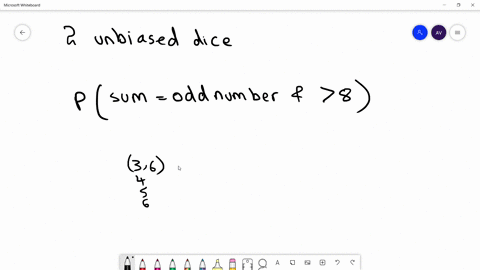 Microsoft Whiteboard
AV
2 unbiased dice
P( sum = odd number & > 8 )
(3,6)
4
5
6